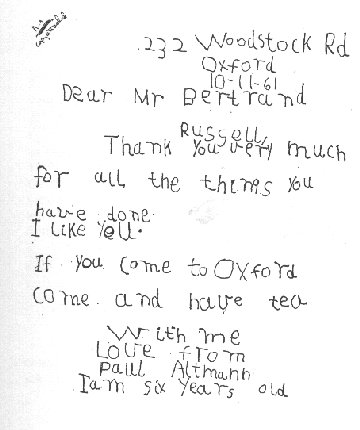 232 Woodstock Rd
Oxford
10-11-61
Dear Mr Bertrand
Russell,
Thank you very much
for all the things you
have done.
I Like you.
If you come to Oxford
come and have tea
With me
Love from
Paul Altmann
I am six years old